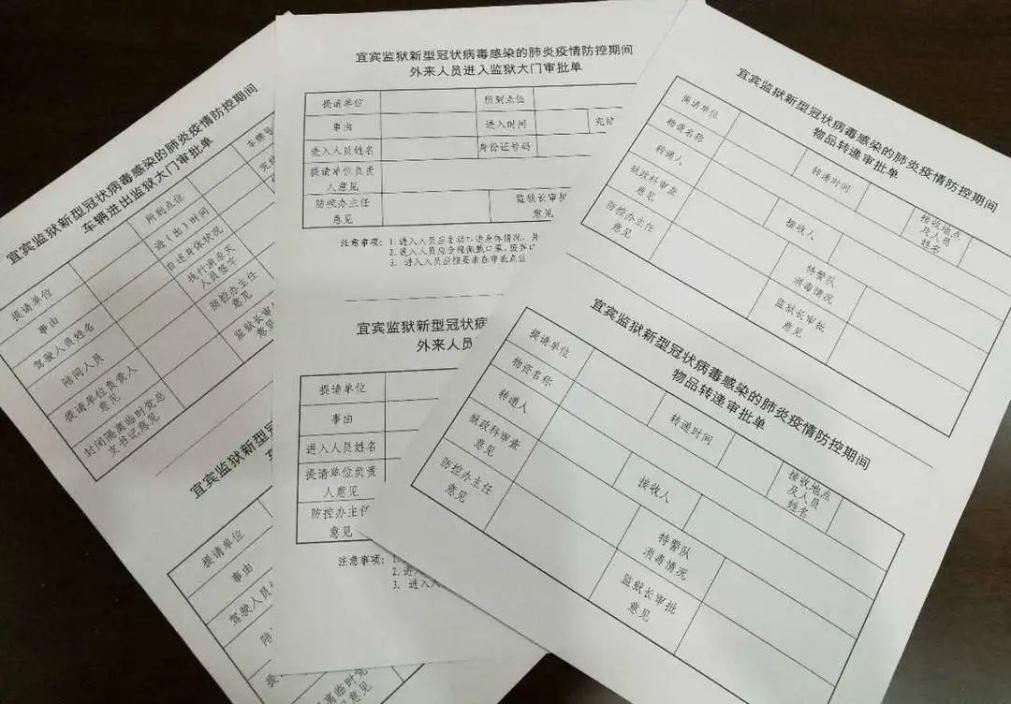 宜宾监狱新型冠状病毒感染的肺炎疫情防控期间
车辆进出监狱大门审批单
提请单位
所到点位
车牌号
事由
进(出)时间
驾驶人员姓名
自述身体状况
陪同人员
人员签字
提请单位负责人
意见
防控办主任
意见
封闭隔离临时党总
支书记意见
监狱长审
意见
宜宾监狱新型冠
提请单位
事由
驾驶人员
陪
提
离临时党
意见
宜宾监狱新型冠状病毒感染的肺炎疫情防控期间
外来人员进入监狱大门审批单
提请单位
所到点位
事由
进入时间
进入人员姓名
身份证号码
提请单位负责
人意见
防控办主任
意见
监狱长审
意见
注意事项:
1. 进入人员应主动
2. 进入人员应全程佩戴口罩,
3. 进入人员应按要求在审批点位
宜宾监狱新型冠状病
外来人员
提请单位
事由
进入人员姓名
提请单位负责
人意见
防控办主任
意见
注意事项:
1.
2. 进
3. 进入人
宜宾监狱新型冠状病毒感染的肺炎疫情防控期间
物品转递审批单
提请单位
物资名称
转递人
转递时间
狱政科审查
意见
接收人
接收地点
及人员
姓名
防控办主任
意见
特警队
消毒情况
监狱长审批
意见
宜宾监狱新型冠状病毒感染的肺炎疫情防控期间
物品转递审批单
提请单位
物资名称
转递人
转递时间
狱政科审查
意见
接收人
接收地点
及人员
姓名
防控办主任
意见
特警队
消毒情况
监狱长审批
意见